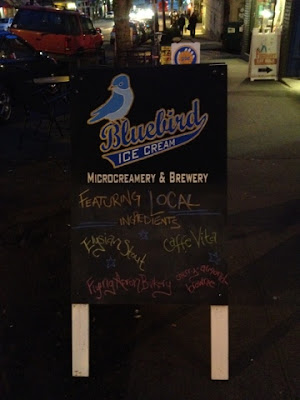 Bluebird
ICE CREAM
MICROCREAMERY & BREWERY
FEATURING LOCAL
INGREDIENTS
Elysian Stout
Caffe Vita
Flying Apron Bakery